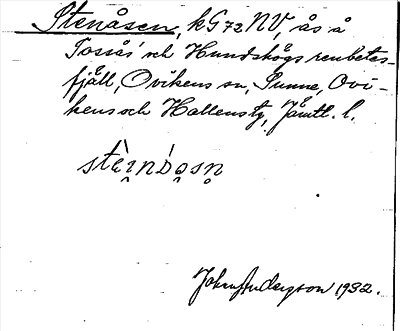 Stenåsen, kG72NV, ås å
Tossås' och Hundshögs renbetes-
fjäll, Ovikens sn, Sunne, Ovi-
kens och Hallens tg, Jämtl. l.
Johan Anderson 1932.